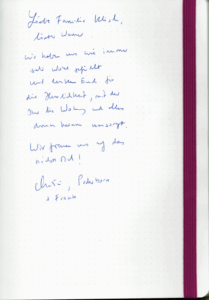 Liebe Familie
lieber Werner
Wir haben uns wie immer
sehr wohl gefühlt
und danken Euch für
die Herzlichkeit, mit der
Ihr die Wohnung und alles
drum herum umsorgt.
Wir freuen uns auf das
nächste Mal!